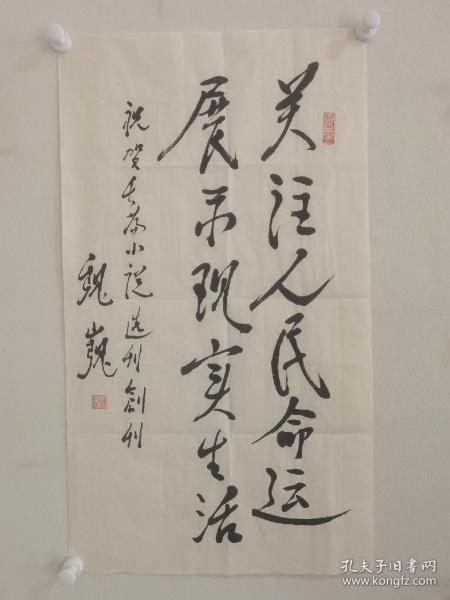 关注人民命运
展示现实生活
祝贺长篇小说选刊創刊
魏巍
孔夫子旧书网
www.kongfz.com